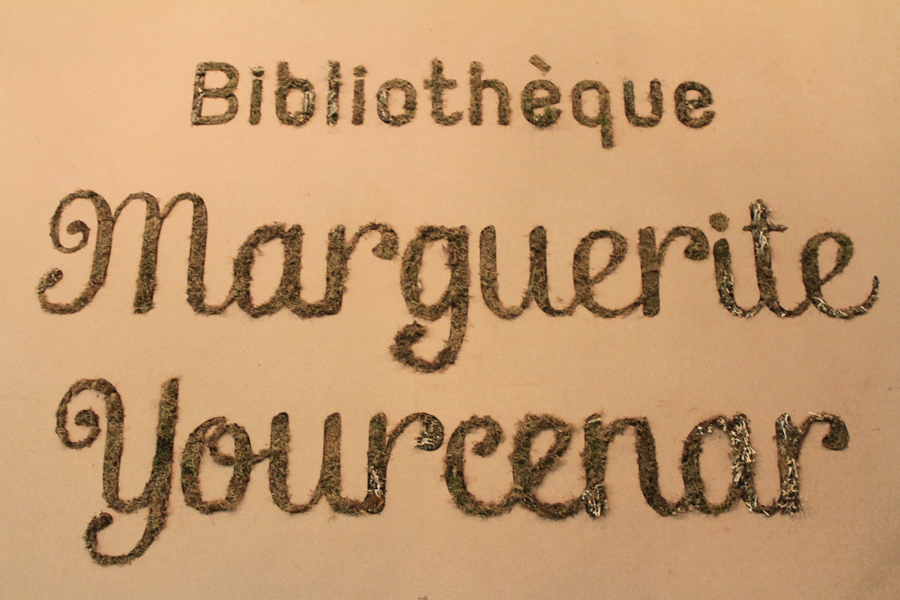 Bibliothèque
Marguerite
Yourcenar